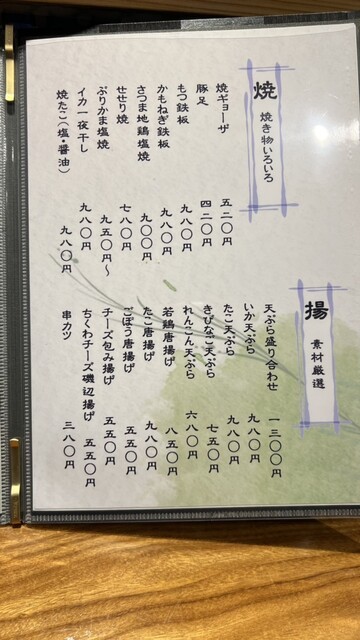 焼 焼き物いろいろ
焼ギョーザ 五二〇円
豚足 四二〇円
もつ鉄板 九八〇円
かもねぎ鉄板 九八〇円
さつま地鶏塩焼 九〇〇円
せせり焼 七八〇円
ぶりかま塩焼 九五〇円～
イカ一夜干し 九八〇円
焼たこ（塩・醤油） 九八〇円
揚 素材厳選
天ぷら盛り合わせ 一三〇〇円
いか天ぷら 九八〇円
たこ天ぷら 九八〇円
きびなご天ぷら 七五〇円
れんこん天ぷら 六八〇円
若鶏唐揚げ 八五〇円
たこ唐揚げ 九八〇円
ごぼう唐揚げ 五五〇円
チーズ包み揚げ 五五〇円
ちくわチーズ磯辺揚げ 五五〇円
串カツ 三八〇円